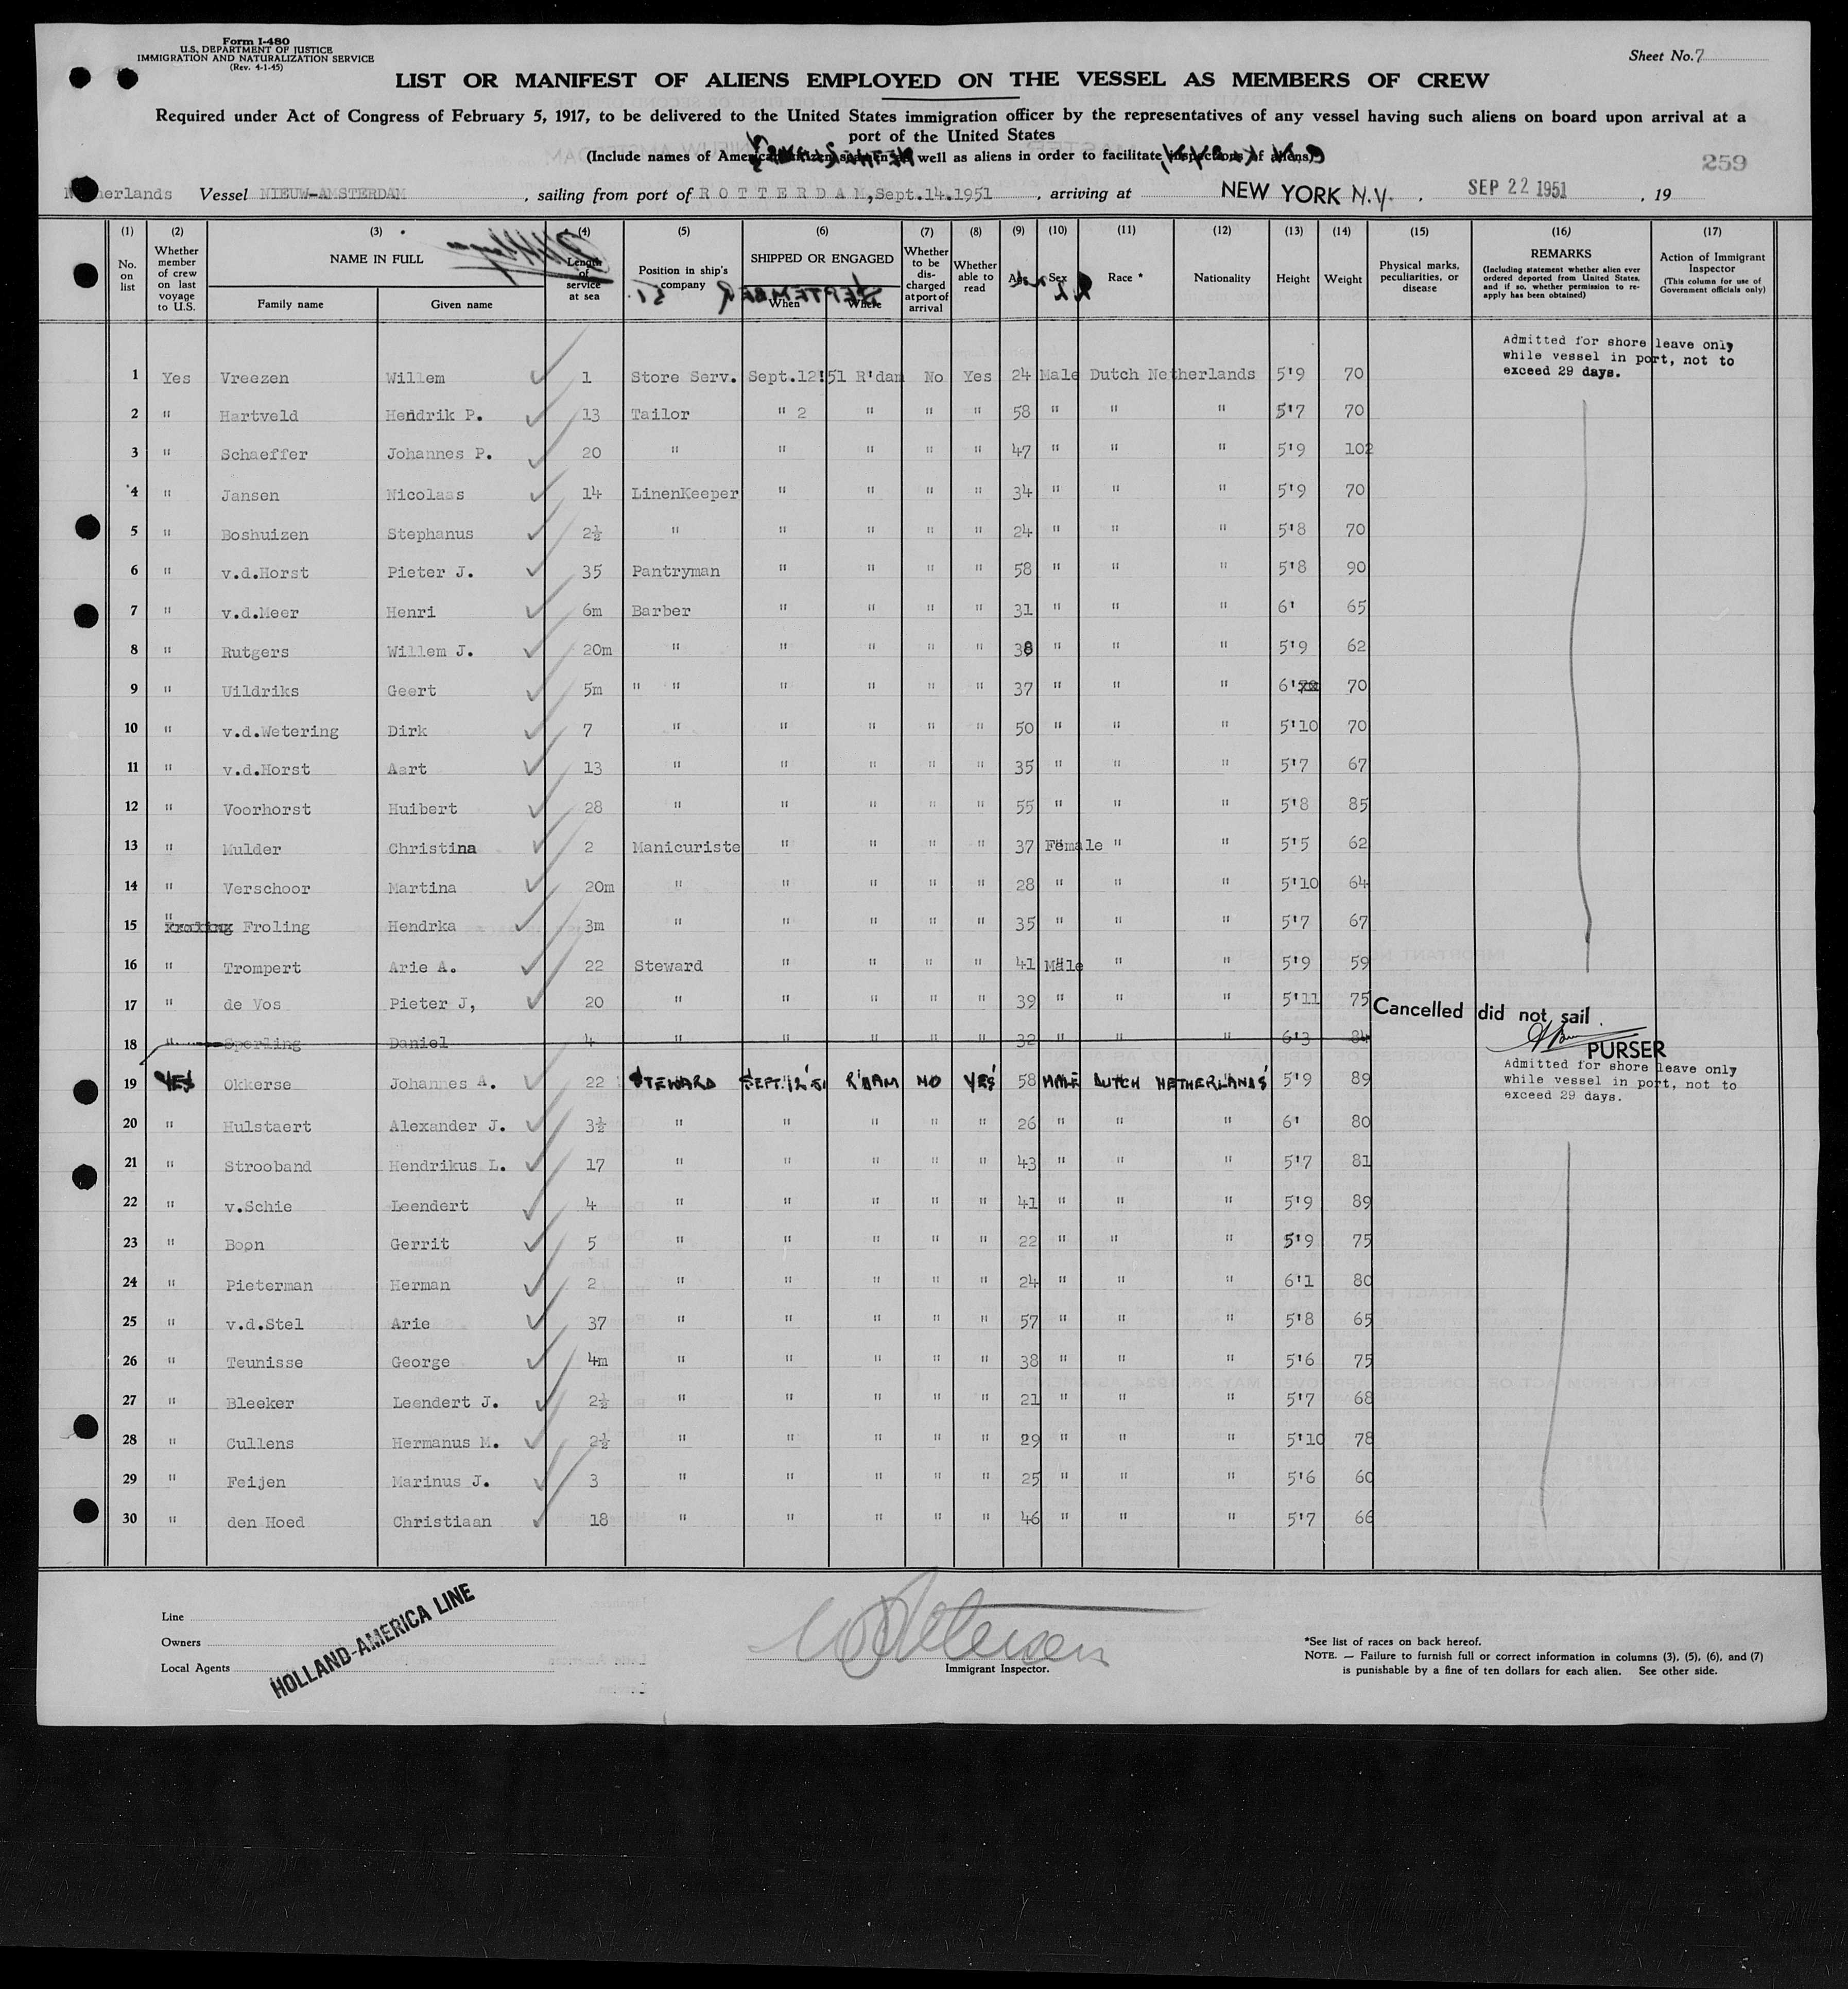 Form I-480
U.S. DEPARTMENT OF JUSTICE
IMMIGRATION AND NATURALIZATION SERVICE
(Rev. 4-1-45)
Sheet No. 7
LIST OR MANIFEST OF ALIENS EMPLOYED ON THE VESSEL AS MEMBERS OF CREW
Required under Act of Congress of February 5, 1917, to be delivered to the United States immigration officer by the representatives of any vessel having such aliens on board upon arrival at a
port of the United States
(Include names of American citizen seamen as well as aliens in order to facilitate inspections of aliens)
259
Netherlands Vessel NIEUW-AMSTERDAM , sailing from port of R O T T E R D A M, Sept.14.1951 , arriving at NEW YORK N.Y. , SEP 22 1951 , 19
(1) (2) (3) (4) (5) (6) (7) (8) (9) (10) (11) (12) (13) (14) (15) (16) (17)
No. on list
Whether member of crew on last voyage to U.S.
NAME IN FULL
Family name Given name
Length of service at sea
Position in ship's company
SHIPPED OR ENGAGED
When Where
Whether to be discharged at port of arrival
Whether able to read
Age Sex Race * Nationality Height Weight
Physical marks, peculiarities, or disease
REMARKS
(Including statement whether alien ever ordered deported from United States, and if so, whether permission to reapply has been obtained)
Action of Immigrant Inspector
(This column for use of Government officials only)
SEPTEMBER
Admitted for shore leave only
while vessel in port, not to
exceed 29 days.
1 Yes Vreezen Willem 1 Store Serv. Sept.12'51 R'dam No Yes 24 Male Dutch Netherlands 5'9 70
2 " Hartveld Hendrik P. 13 Tailor " 2 " " " 58 " " " 5'7 70
3 " Schaeffer Johannes P. 20 " " " " " 47 " " " 5'9 102
4 " Jansen Nicolaas 14 LinenKeeper " " " " 34 " " " 5'9 70
5 " Boshuizen Stephanus 2½ " " " " " 24 " " " 5'8 70
6 " v.d.Horst Pieter J. 35 Pantryman " " " " 58 " " " 5'8 90
7 " v.d.Meer Henri 6m Barber " " " " 31 " " " 6' 65
8 " Rutgers Willem J. 20m " " " " " 38 " " " 5'9 62
9 " Uildriks Geert 5m " " " " " " 37 " " " 6' 70
10 " v.d.Wetering Dirk 7 " " " " " 50 " " " 5'10 70
11 " v.d.Horst Aart 13 " " " " " 35 " " " 5'7 67
12 " Voorhorst Huibert 28 " " " " " 55 " " " 5'8 85
13 " Mulder Christina 2 Manicuriste " " " " 37 Female " " 5'5 62
14 " Verschoor Martina 20m " " " " " 28 " " " 5'10 64
15 " Froling Hendrka 3m " " " " " 35 " " " 5'7 67
16 " Trompert Arie A. 22 Steward " " " " 41 Male " " 5'9 59
17 " de Vos Pieter J, 20 " " " " " 39 " " " 5'11 75
Cancelled did not sail.
18 " Sperling Daniel 4 " " " " " 32 " " " 6'3 84
PURSER
Admitted for shore leave only
while vessel in port, not to
exceed 29 days.
19 YES Okkerse Johannes A. 22 STEWARD SEPT.12'51 R'DAM NO YES 58 MALE DUTCH NETHERLANDS 5'9 89
20 " Hulstaert Alexander J. 3½ " " " " " 26 " " " 6' 80
21 " Strooband Hendrikus L. 17 " " " " " 43 " " " 5'7 81
22 " v.Schie Leendert 4 " " " " " 41 " " " 5'9 89
23 " Boon Gerrit 5 " " " " " 22 " " " 5'9 75
24 " Pieterman Herman 2 " " " " " 24 " " " 6'1 80
25 " v.d.Stel Arie 37 " " " " " 57 " " " 5'8 65
26 " Teunisse George 4m " " " " " 38 " " " 5'6 75
27 " Bleeker Leendert J. 2½ " " " " " 21 " " " 5'7 68
28 " Cullens Hermanus M. 2½ " " " " " 29 " " " 5'10 78
29 " Feijen Marinus J. 3 " " " " " 25 " " " 5'6 60
30 " den Hoed Christiaan 18 " " " " " 46 " " " 5'7 66
Line
Owners
Local Agents
HOLLAND-AMERICA LINE
Immigrant Inspector.
*See list of races on back hereof.
NOTE. — Failure to furnish full or correct information in columns (3), (5), (6), and (7)
is punishable by a fine of ten dollars for each alien. See other side.